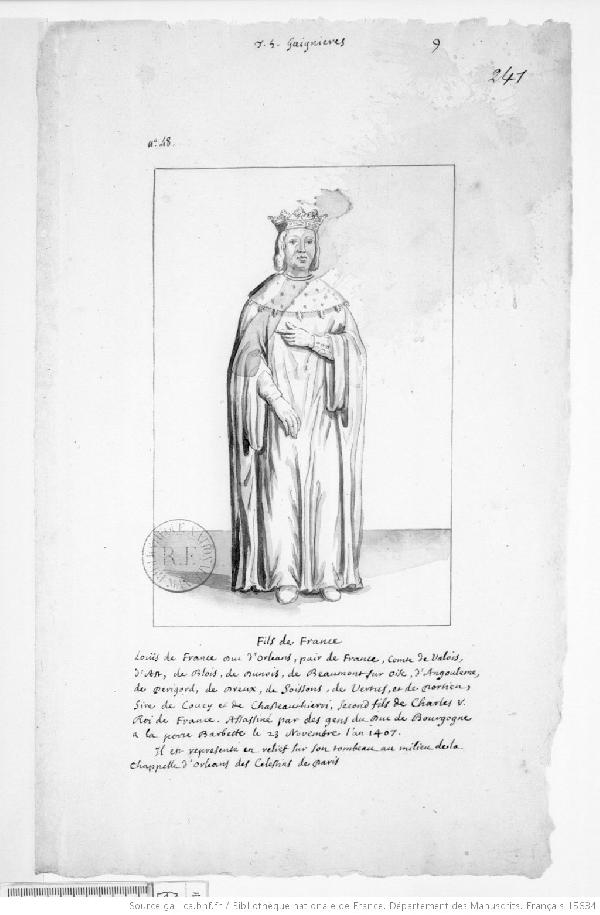 T. 5. Gaignieres 9
241
n.° 48.
R.F
Fils de France
Loüis de France Duc d'Orleans, pair de France, Comte de Valois,
d'Ast, de Blois, de Dunois, de Beaumont sur Oise, d'Angouleme,
de Perigord, de Dreux, de Soissons, de Vertus, et de Portien,
Sire de Coucy et de Chasteauthierri, second fils de Charles V.
Roi de France. Assassiné par des gens du Duc de Bourgogne
a la porte Barbette le 23 Novembre l'an 1407.
Il est represente en relief sur son tombeau au milieu de la
Chappelle d'Orleans des Celestins de Paris
Source gallica.bnf.fr / Bibliothèque nationale de France. Département des Manuscrits. Français 15634